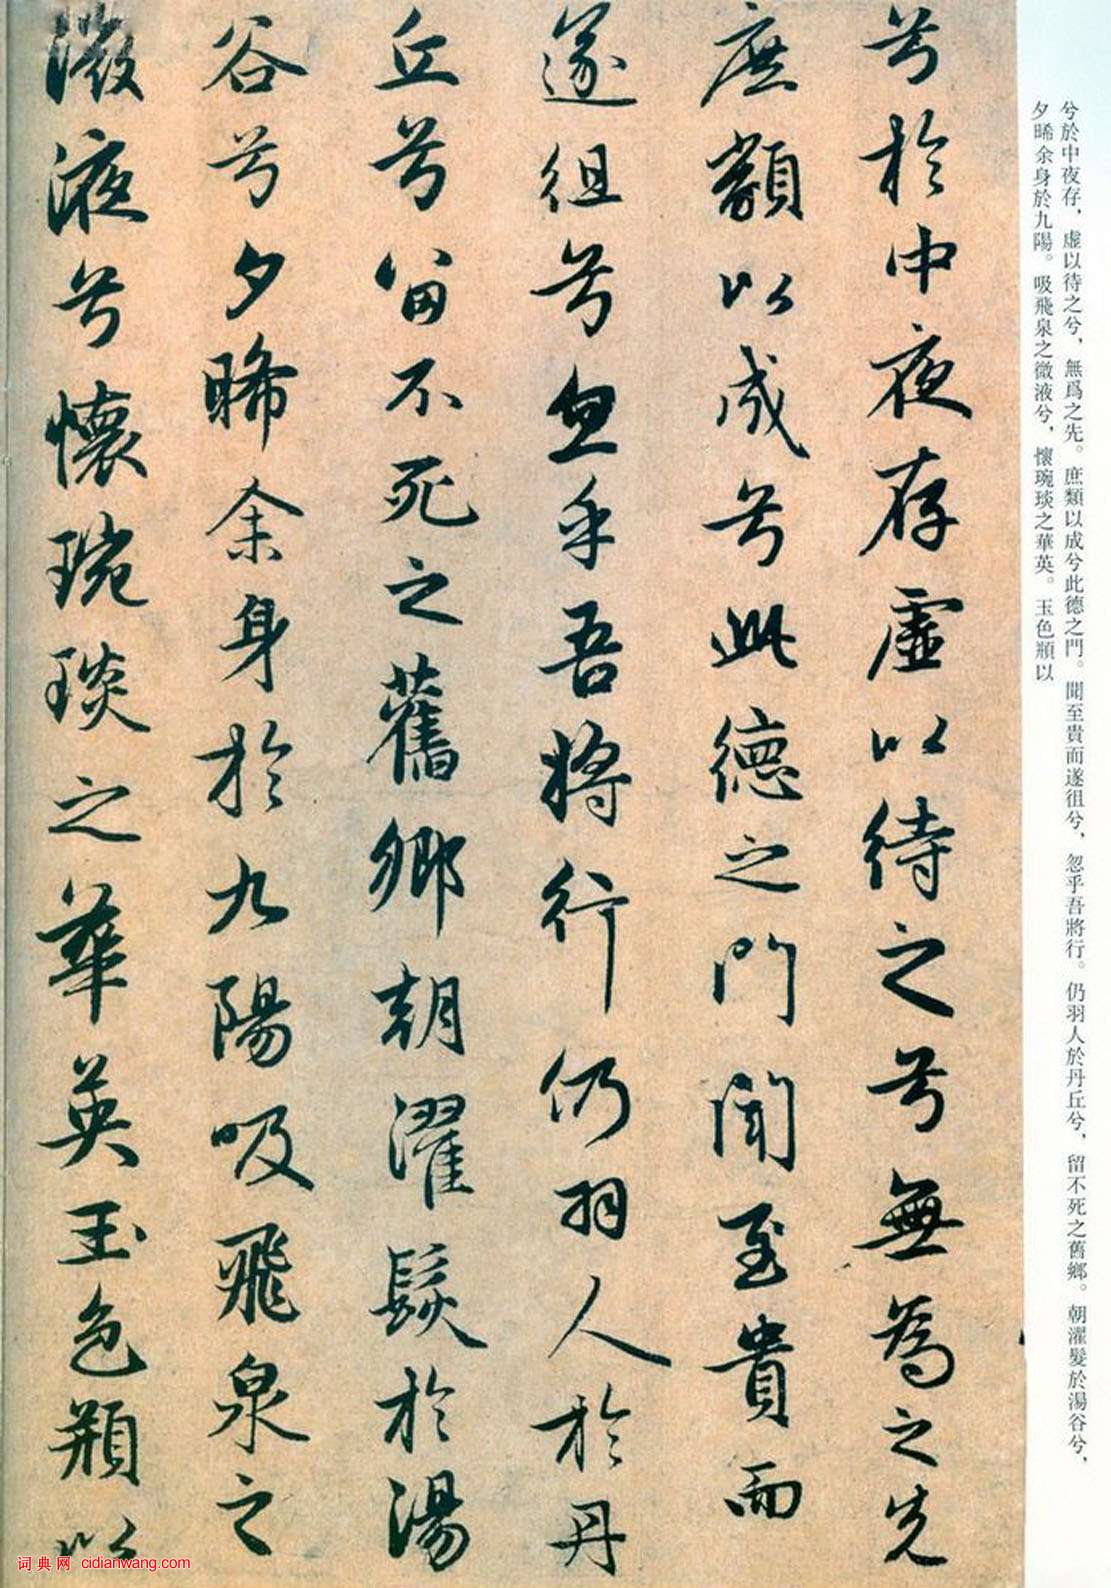 兮於中夜存，虛以待之兮，無爲之先。庶類以成兮此德之門。聞至貴而遂徂兮，忽乎吾將行。仍羽人於丹丘兮，留不死之舊鄉。朝濯髮於湯谷兮，
夕晞余身於九陽。吸飛泉之微液兮，懷琬琰之華英。玉色頩以
兮於中夜存虛以待之兮無為之先
庶類以成兮此德之門聞至貴而
遂徂兮忽乎吾將行仍羽人於丹
丘兮留不死之舊鄉朝濯髮於湯
谷兮夕晞余身於九陽吸飛泉之
微液兮懷琬琰之華英玉色頩以
词典网 cidianwang.com